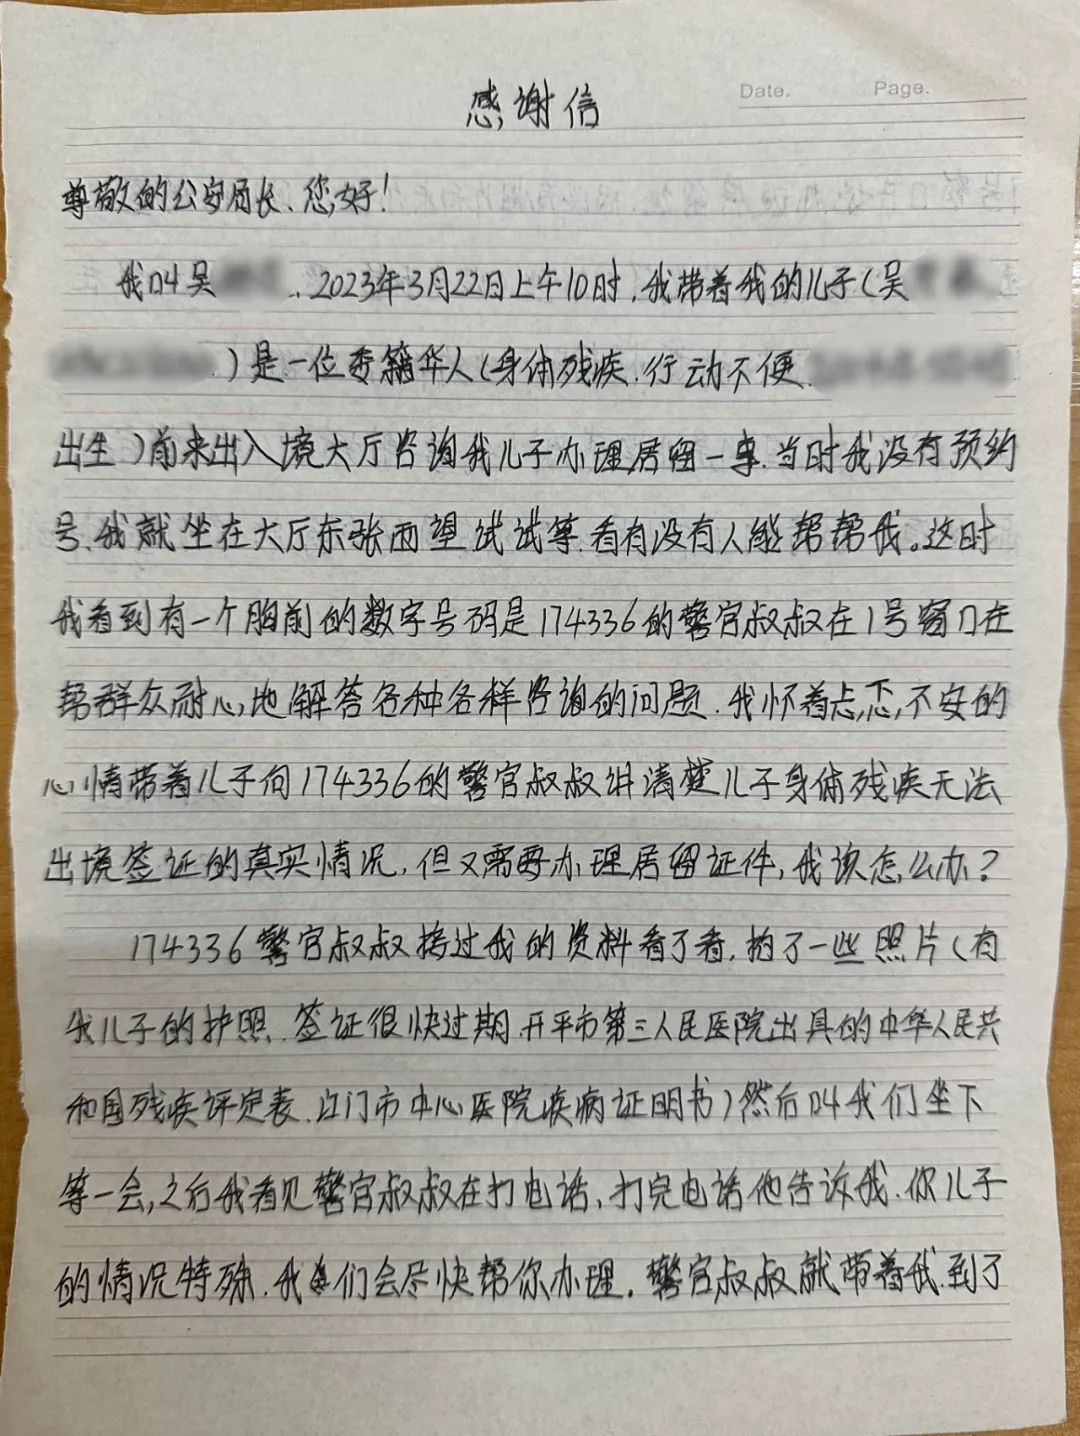 Date. Page.
感谢信
尊敬的公安局长、您好!
我叫吴 、2023年3月22日上午10时,我带着我的儿子(吴
)是一位委籍华人(身体残疾.行动不便
出生)前来出入境大厅咨询我儿子办理居留一事.当时我没有预约
号、我就坐在大厅东张西望.试试等.看有没有人能帮帮我。这时
我看到有一个胸前的数字号码是174336的警官叔叔在1号窗口在
帮群众耐心地解答各种各样咨询的问题.我怀着忐忑,不安的
心情带着儿子向174336的警官叔叔讲清楚儿子身体残疾无法
出境签证的真实情况,但又需要办理居留证件,我该怎么办?
174336警官叔叔接过我的资料看了看,拍了一些照片(有
我儿子的护照、签证很快过期.开平市第三人民医院出具的中华人民共
和国残疾评定表.江门市中心医院疾病证明书)然后叫我们坐下
等一会,之后我看见警官叔叔在打电话,打完电话他告诉我、你儿子
的情况特殊.我们会尽快帮你办理.警官叔叔就带着我到了